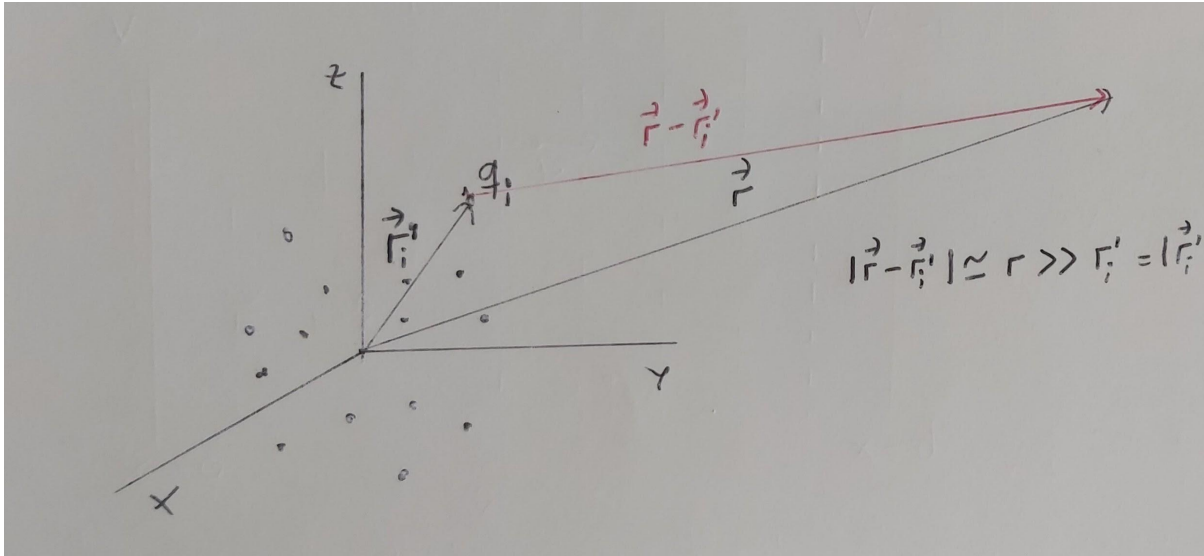 Z
r⃗ - r⃗ᵢ'
qᵢ
r⃗
r⃗ᵢ'
|r⃗ - r⃗ᵢ'| ≃ r >> rᵢ' = |r⃗ᵢ'
Y
X